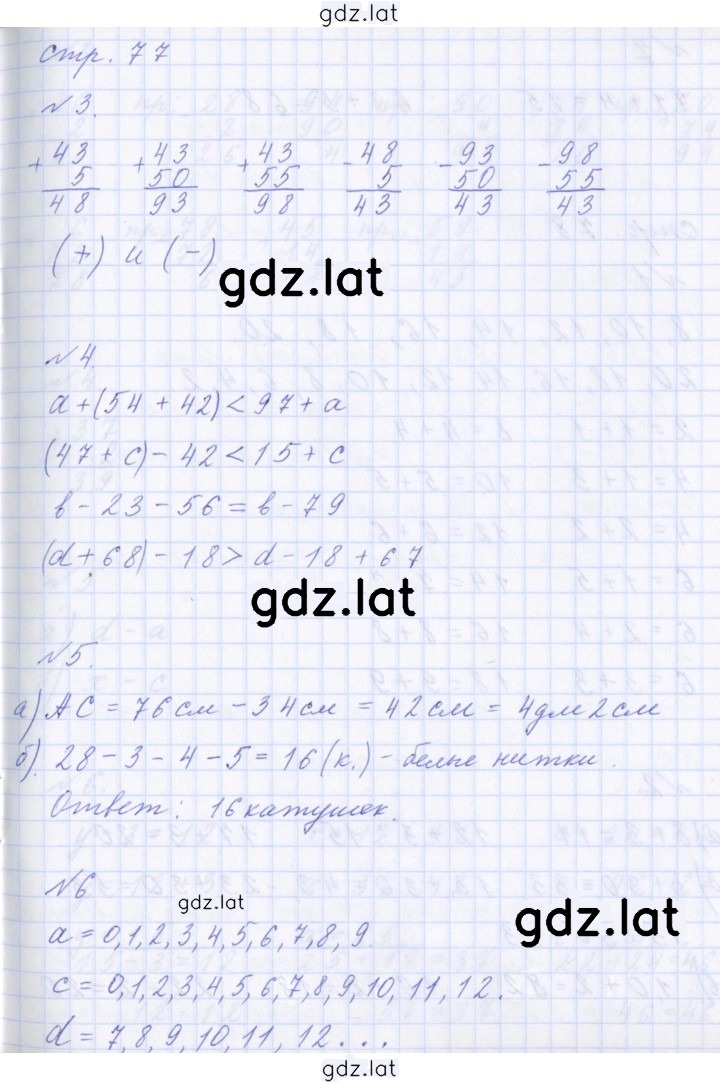 gdz.lat
стр. 77
№3.
+43 +43 +43 -48 -93 -98
5 50 55 5 50 55
48 93 98 43 43 43
(+) и (-)
gdz.lat
№4.
a+(54+42)<97+a
(47+c)-42<15+c
в-23-56=в-79
(d+68)-18>d-18+67
gdz.lat
№5.
а) AC = 76 см - 34 см = 42 см = 4 дм 2 см
б). 28-3-4-5=16 (к.) - белые нитки.
Ответ: 16 катушек.
№6
gdz.lat
gdz.lat
a=0,1,2,3,4,5,6,7,8,9.
c=0,1,2,3,4,5,6,7,8,9,10,11,12.
d=7,8,9,10,11,12...
gdz.lat